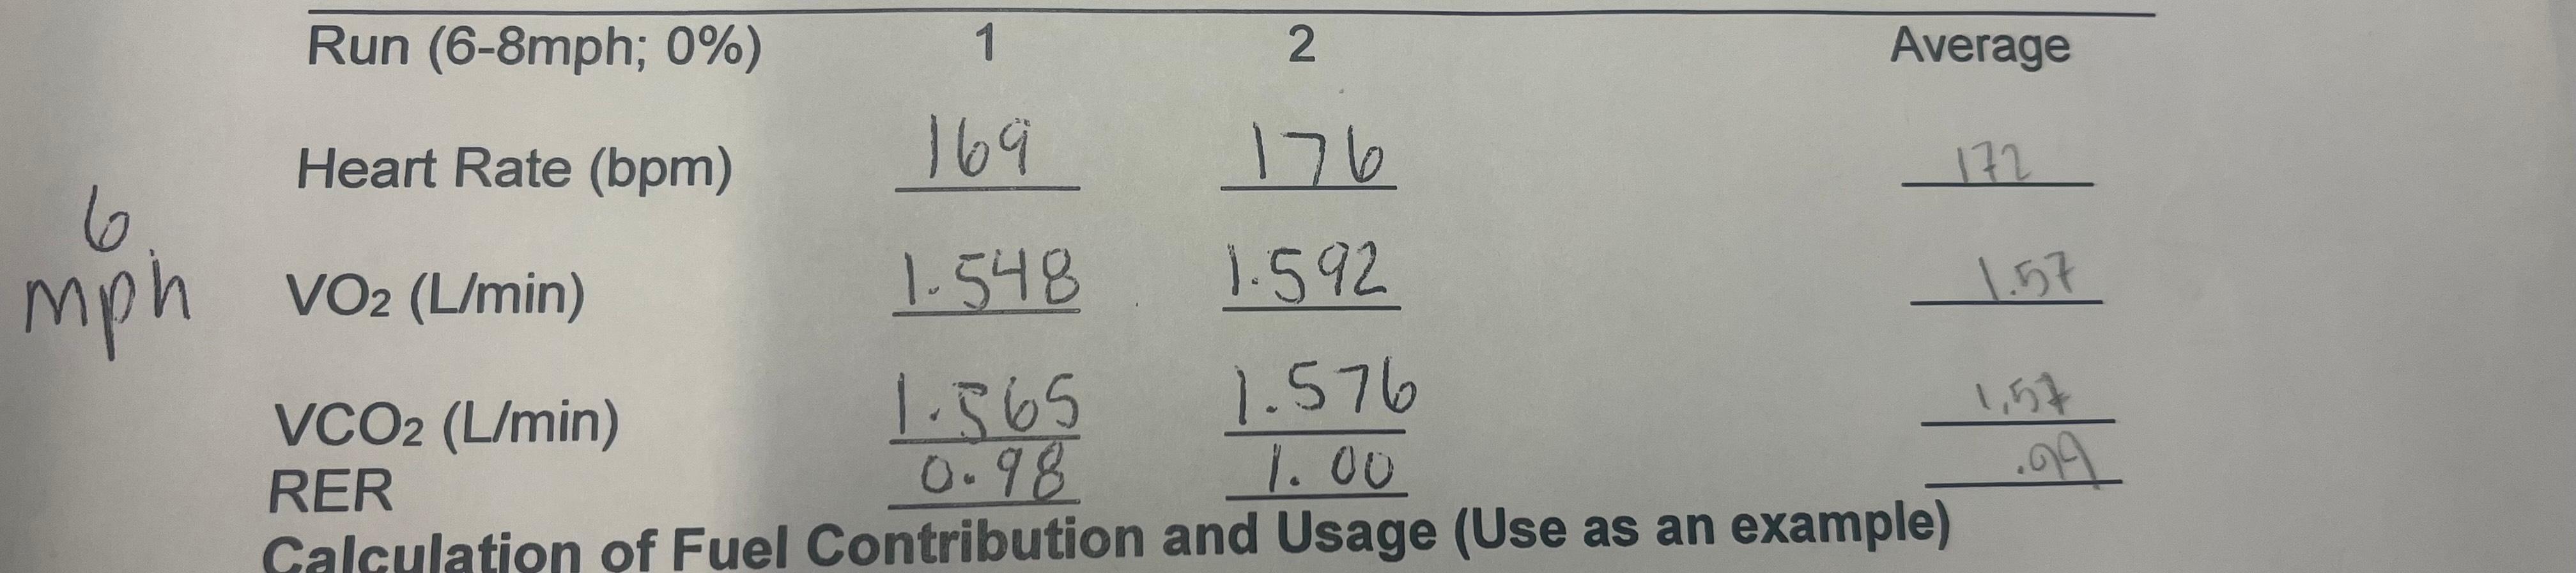 Run (6-8mph; 0%) 1 2 Average
Heart Rate (bpm) 169 176 172
6
mph
VO₂ (L/min) 1.548 1.592 1.57
VCO₂ (L/min) 1.565 1.576 1.57
RER 0.98 1.00 .99
Calculation of Fuel Contribution and Usage (Use as an example)